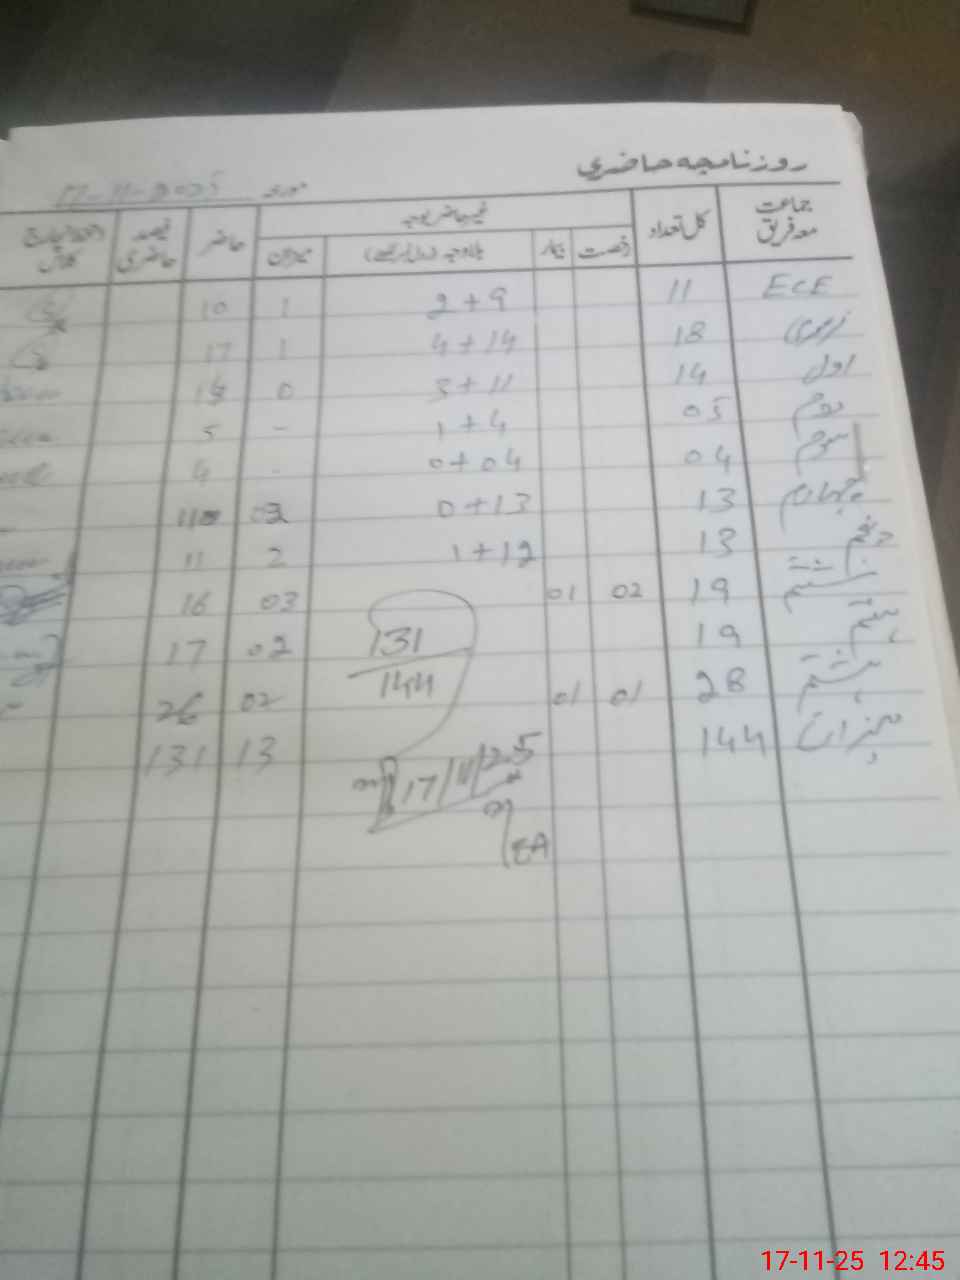 روزنامچہ حاضری
مورخہ 17-11-2025
جماعت معہ فریق کل تعداد غیر حاضر بوجہ حاضر فیصد حاضری
رخصت بیمار بلاوجہ میزان
ECE 11 2+9 1 10
نرسری 18 4+14 1 17
اول 14 3+11 0 14
دوم 05 1+4 - 5
سوم 04 0+04 - 4
چہارم 13 0+13 02 11
پنجم 13 1+12 2 11
ششم 19 02 01 03 16
ہفتم 19 02 17
ہشتم 28 01 01 02 26
میزان 144 13 131
131
144
17/11/25
17-11-25 12:45